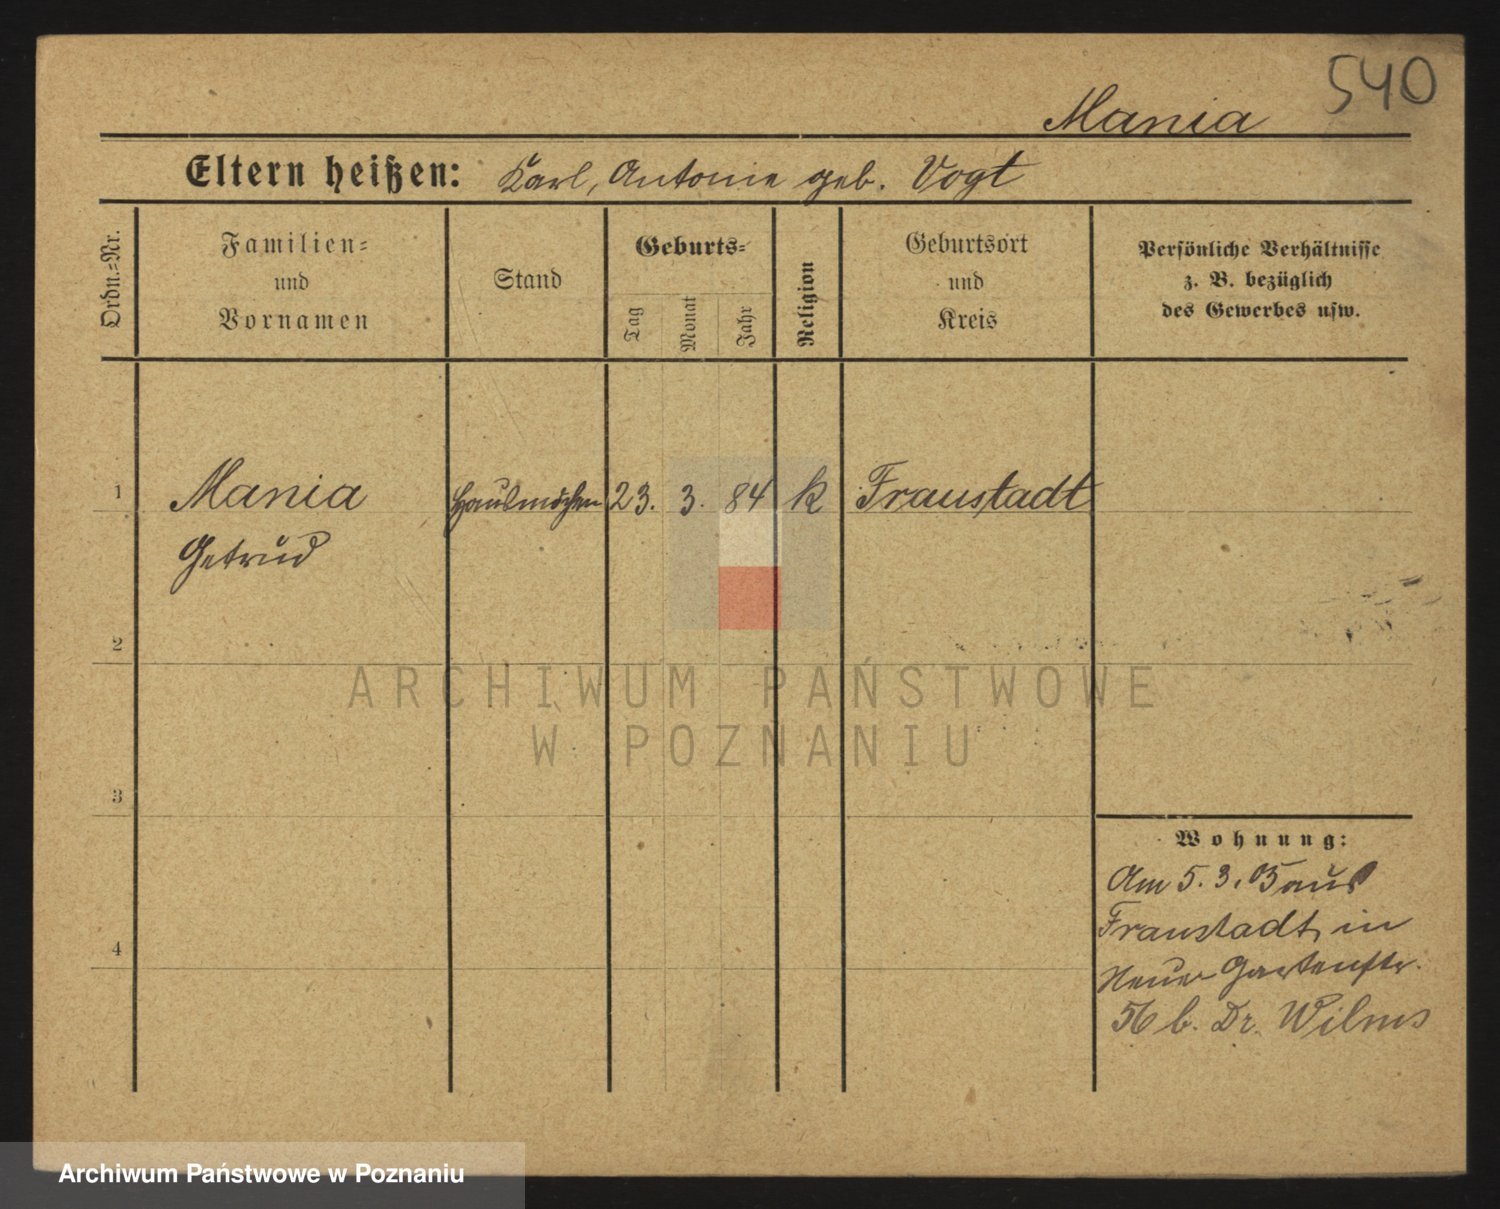 540
Mania
Eltern heißen: Karl, Antonie geb. Vogt
Ordn.=Nr.
Familien=
und
Vornamen
Stand
Geburts=
Tag
Monat
Jahr
Religion
Geburtsort
und
Kreis
Persönliche Verhältnisse
z. B. bezüglich
des Gewerbes usw.
1
Mania
Getrud
23. 3. 84
k
Fraustadt
2
ARCHIWUM PAŃSTWOWE
W POZNANIU
3
4
Wohnung:
Am 5. 3. 03 aus
Fraustadt, in
Neue Gartenstr.
56 b. Dr. Wilms
Archiwum Państwowe w Poznaniu